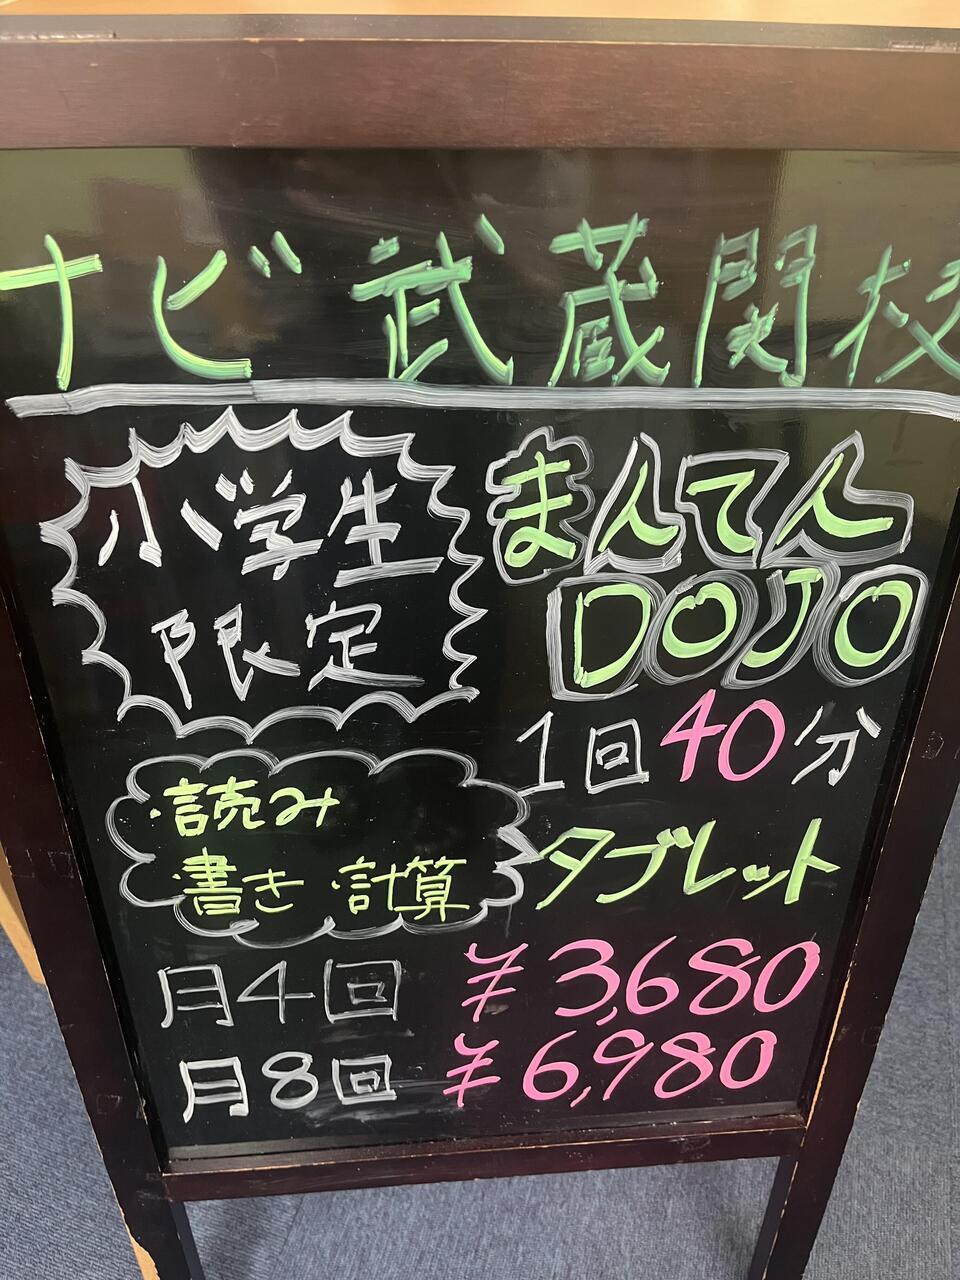 ナビ 武蔵関校
小学生
限定
まんてん
DOJO
1回40分
読み
書き 計算
タブレット
月4回 ¥3,680
月8回 ¥6,980